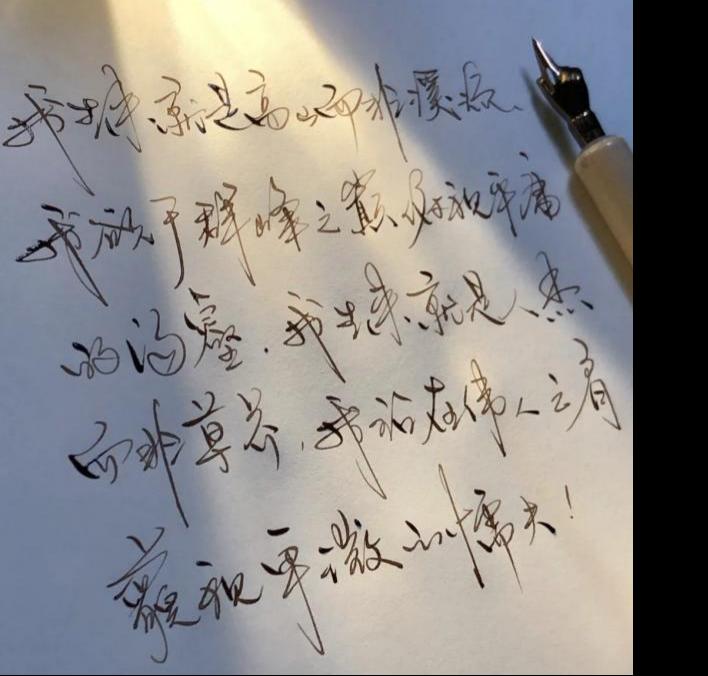 我生来就是高山而非溪流、
我欲于群峰之巅俯视平庸
的沟壑.我生来就是人杰
而非草芥,我站在伟人之肩
藐视卑微的懦夫!